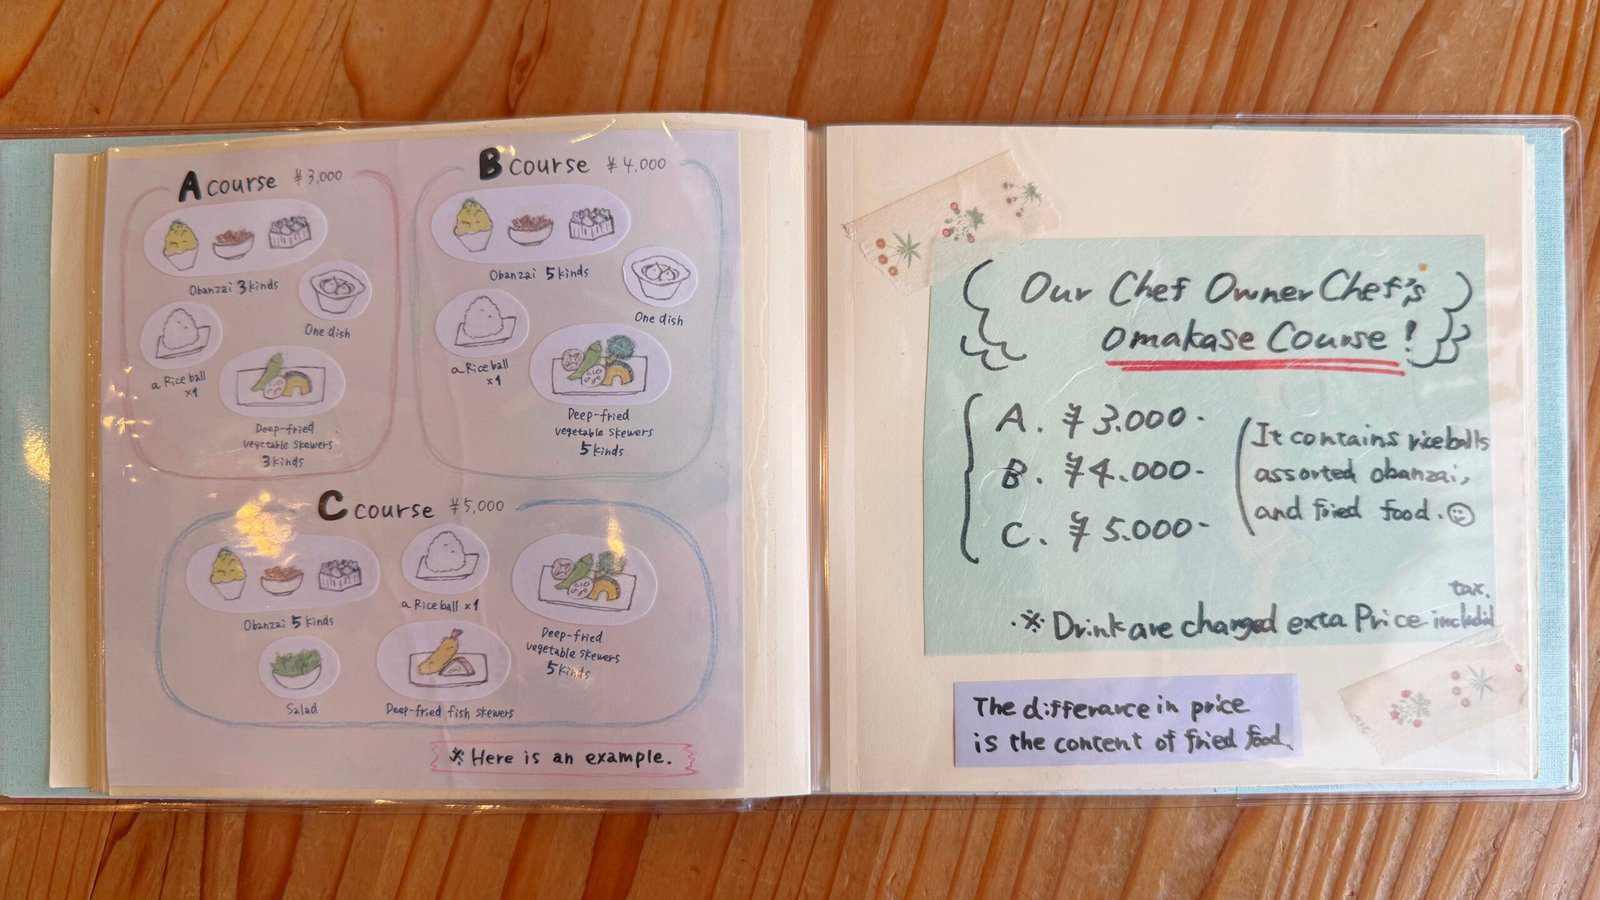 A course ¥3,000
Obanzai 3 kinds
One dish
a Rice ball
×1
Deep-fried
vegetable skewers
3 kinds
B course ¥4,000
Obanzai 5 kinds
One dish
a Rice ball
×1
Deep-fried
vegetable skewers
5 kinds
C course ¥5,000
Obanzai 5 kinds
a Rice ball ×1
Deep-fried
vegetable skewers
5 kinds
Salad
Deep-fried fish skewers
※ Here is an example.
Our Chef Owner Chef's
Omakase Course!
A. ¥3.000-
B. ¥4.000-
C. ¥5.000-
It contains riceballs
assorted obanzai,
and fried food.
tax.
※ Drink are charged exta Price includid
The differance in price
is the content of fried food.